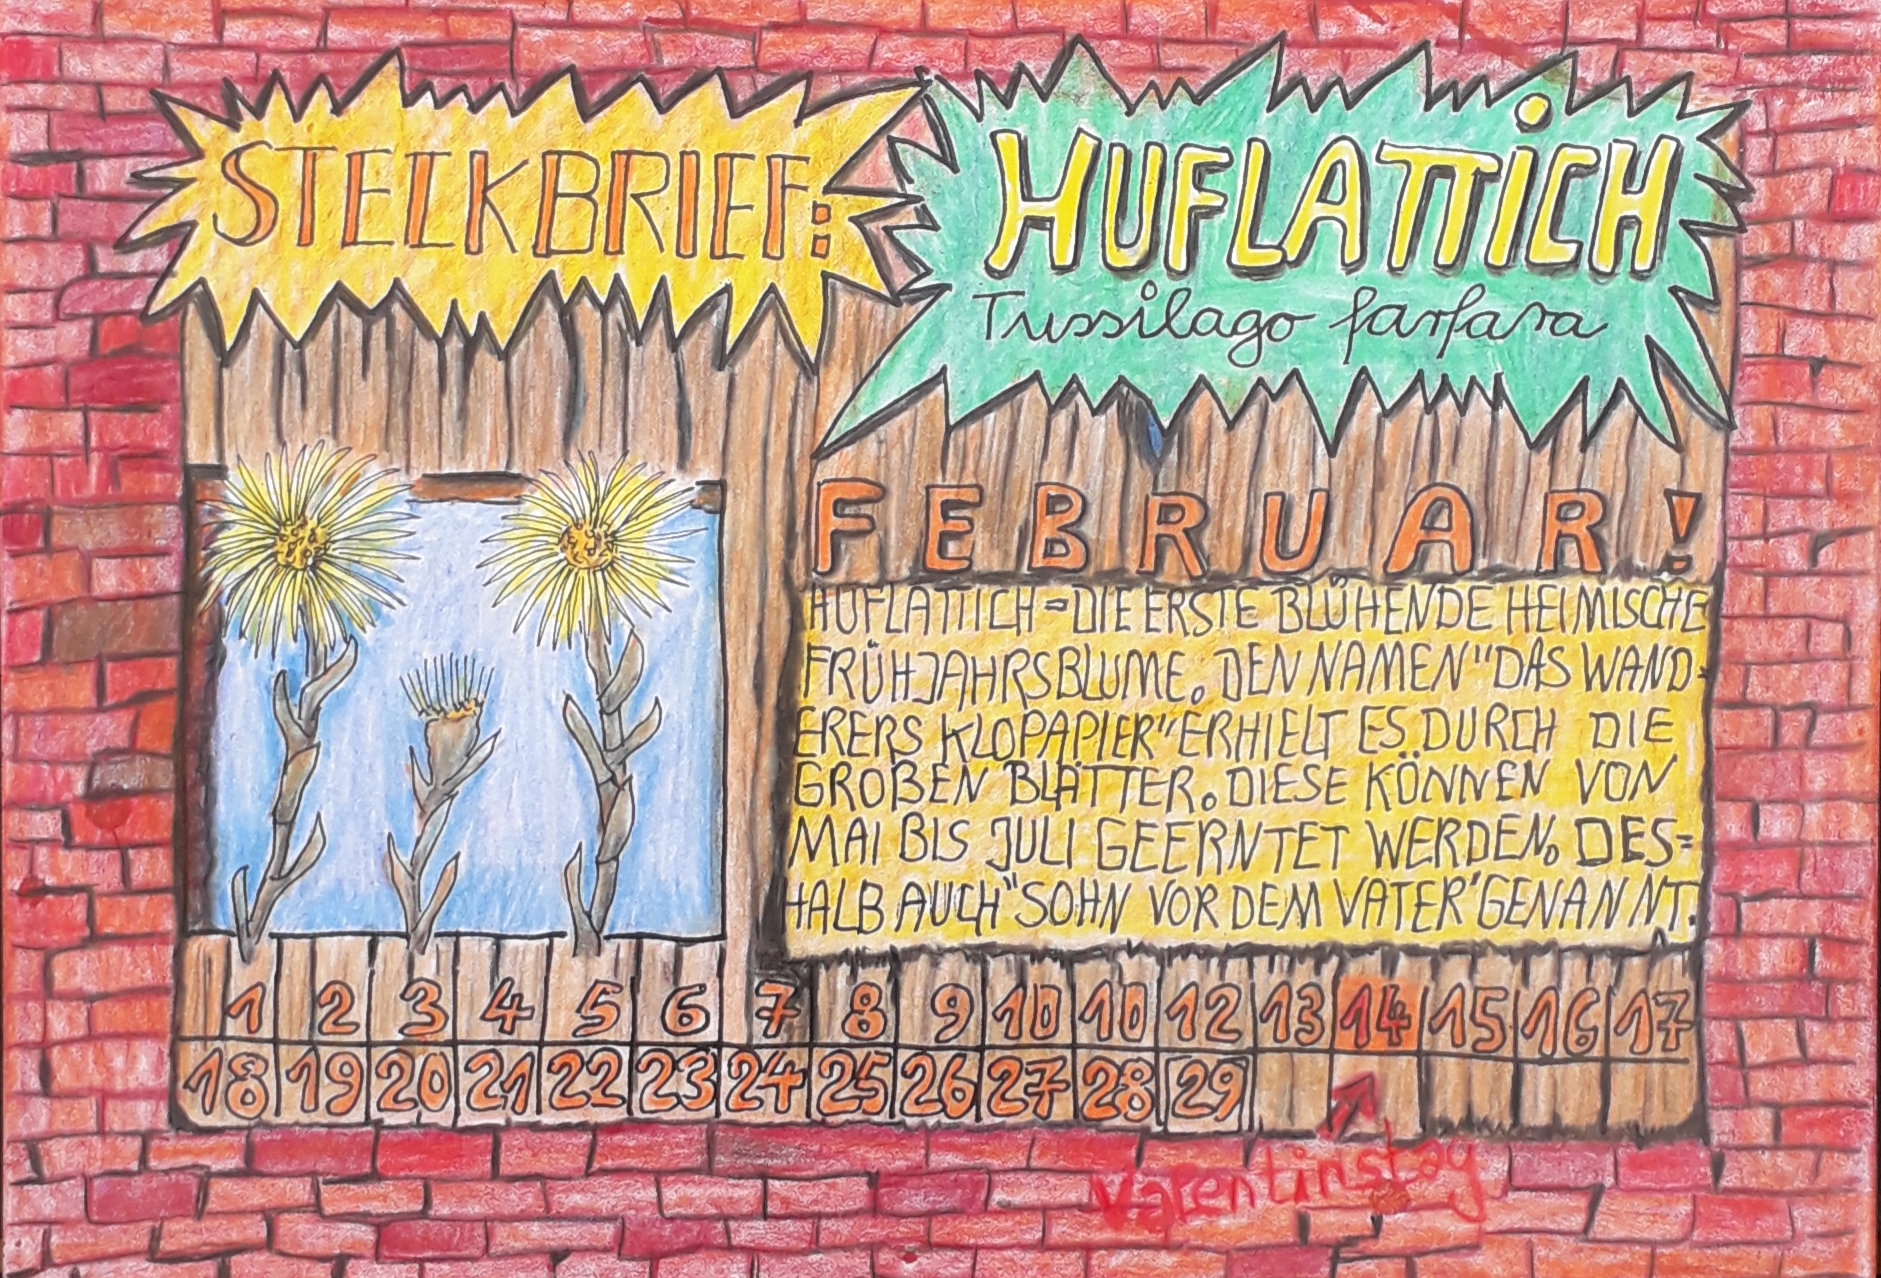 STECKBRIEF:
HUFLATTICH
Tussilago farfara
FEBRUAR!
HUFLATTICH=DIE ERSTE BLÜHENDE HEIMISCHE
FRÜHJAHRSBLUME. DEN NAMEN "DAS WAND=
ERERS KLOPAPIER" ERHIELT ES DURCH DIE
GROßEN BLÄTTER. DIESE KÖNNEN VON
MAI BIS JULI GEERNTET WERDEN. DES=
HALB AUCH "SOHN VOR DEM VATER" GENANNT.
1 2 3 4 5 6 7 8 9 10 10 12 13 14 15 16 17
18 19 20 21 22 23 24 25 26 27 28 29
Valentinstag